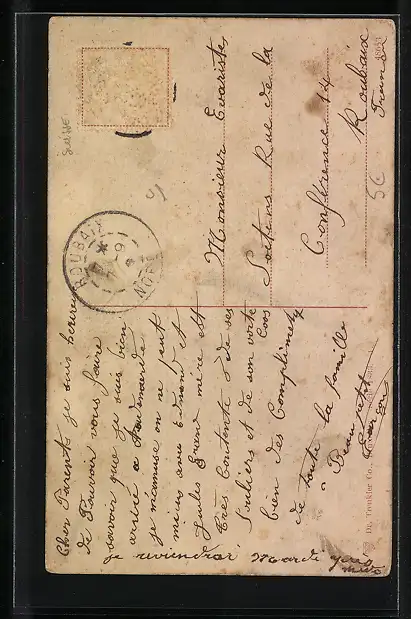 Cher Parents je suis heureux
de Pouvoir vous faire
savoir que je suis bien
arrivé a Audenarde
je m'amuse on ne peut
mieux avec Ernond et
Jules Grand mère est
très Contente de ses
Souliers et de son vote
bien des Compliments
de toute la famille
Beau petit
Garçon
je reviendrai Mardi
Monsieur Evariste
Soetens Rue de la
Conférence 14
Roubaix
France
ROUBAIX
NORD
Suisse
5€
Dr. Trenkler Co.,